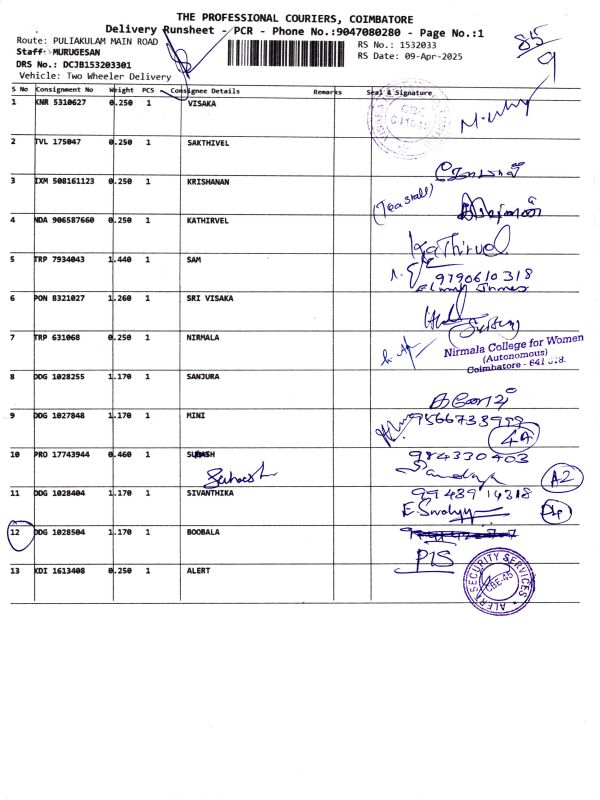 THE PROFESSIONAL COURIERS, COIMBATORE
Delivery Runsheet - PCR - Phone No.:9047080280 - Page No.:1
Route: PULIAKULAM MAIN ROAD
RS No.: 1532033
Staff: MURUGESAN
RS Date: 09-Apr-2025
DRS No.: DCJB153203301
Vehicle: Two Wheeler Delivery
85
9
S No Consignment No Weight PCS Consignee Details Remarks Seal & Signature
1 KNR 5310627 0.250 1 VISAKA
2 TVL 175047 0.250 1 SAKTHIVEL
3 IXM 508161123 0.250 1 KRISHANAN
(Tea stall)
4 NDA 906587660 0.250 1 KATHIRVEL
Kathirvel
5 TRP 7934043 1.440 1 SAM
9790610318
6 PON 8321027 1.260 1 SRI VISAKA
7 TRP 631068 0.250 1 NIRMALA
Nirmala College for Women
(Autonomous)
Coimbatore - 641 018.
8 DDG 1028255 1.170 1 SANJURA
9 DDG 1027848 1.170 1 MINI
9566733999
4A
10 PRO 17743944 0.460 1 SUBASH
984330403
A2
11 DDG 1028404 1.170 1 SIVANTHIKA
9943914318
12 DDG 1028504 1.170 1 BOOBALA
P1S
13 KDI 1613408 0.250 1 ALERT
ALERT SECURITY SERVICES
CBE-45